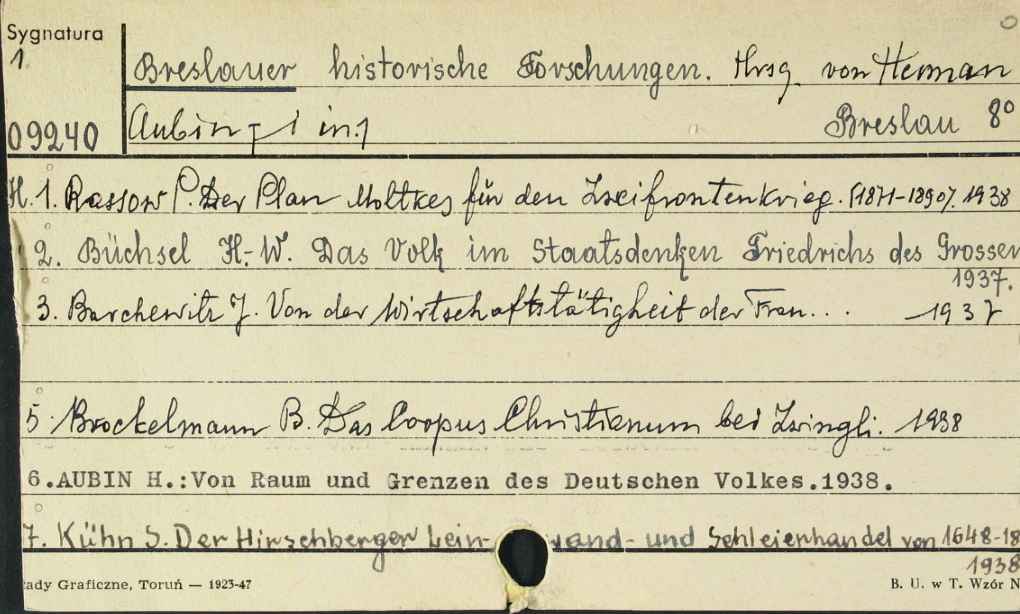 Sygnatura
1.
Breslauer historische Forschungen. Hrsg. von Herman
09240
Aubin i in.
Breslau 8°
H. 1. Rassow P. Der Plan Moltkes für den Zweifrontenkrieg. (1871-1890). 1938
2. Büchsel H.-W. Das Volk im Staatsdenken Friedrichs des Grossen
1937.
3. Barchewitz J. Von der Wirtschaftstätigkeit der Frau... 1937
5. Brockelmann B. Das Corpus Christianum bei Zwingli. 1938
6.AUBIN H.:Von Raum und Grenzen des Deutschen Volkes.1938.
7. Kühn S. Der Hirschberger Lein- wand- und Schleierhandel von 1648-18
1938
ady Graficzne, Toruń — 1923-47
B. U. w T. Wzór N